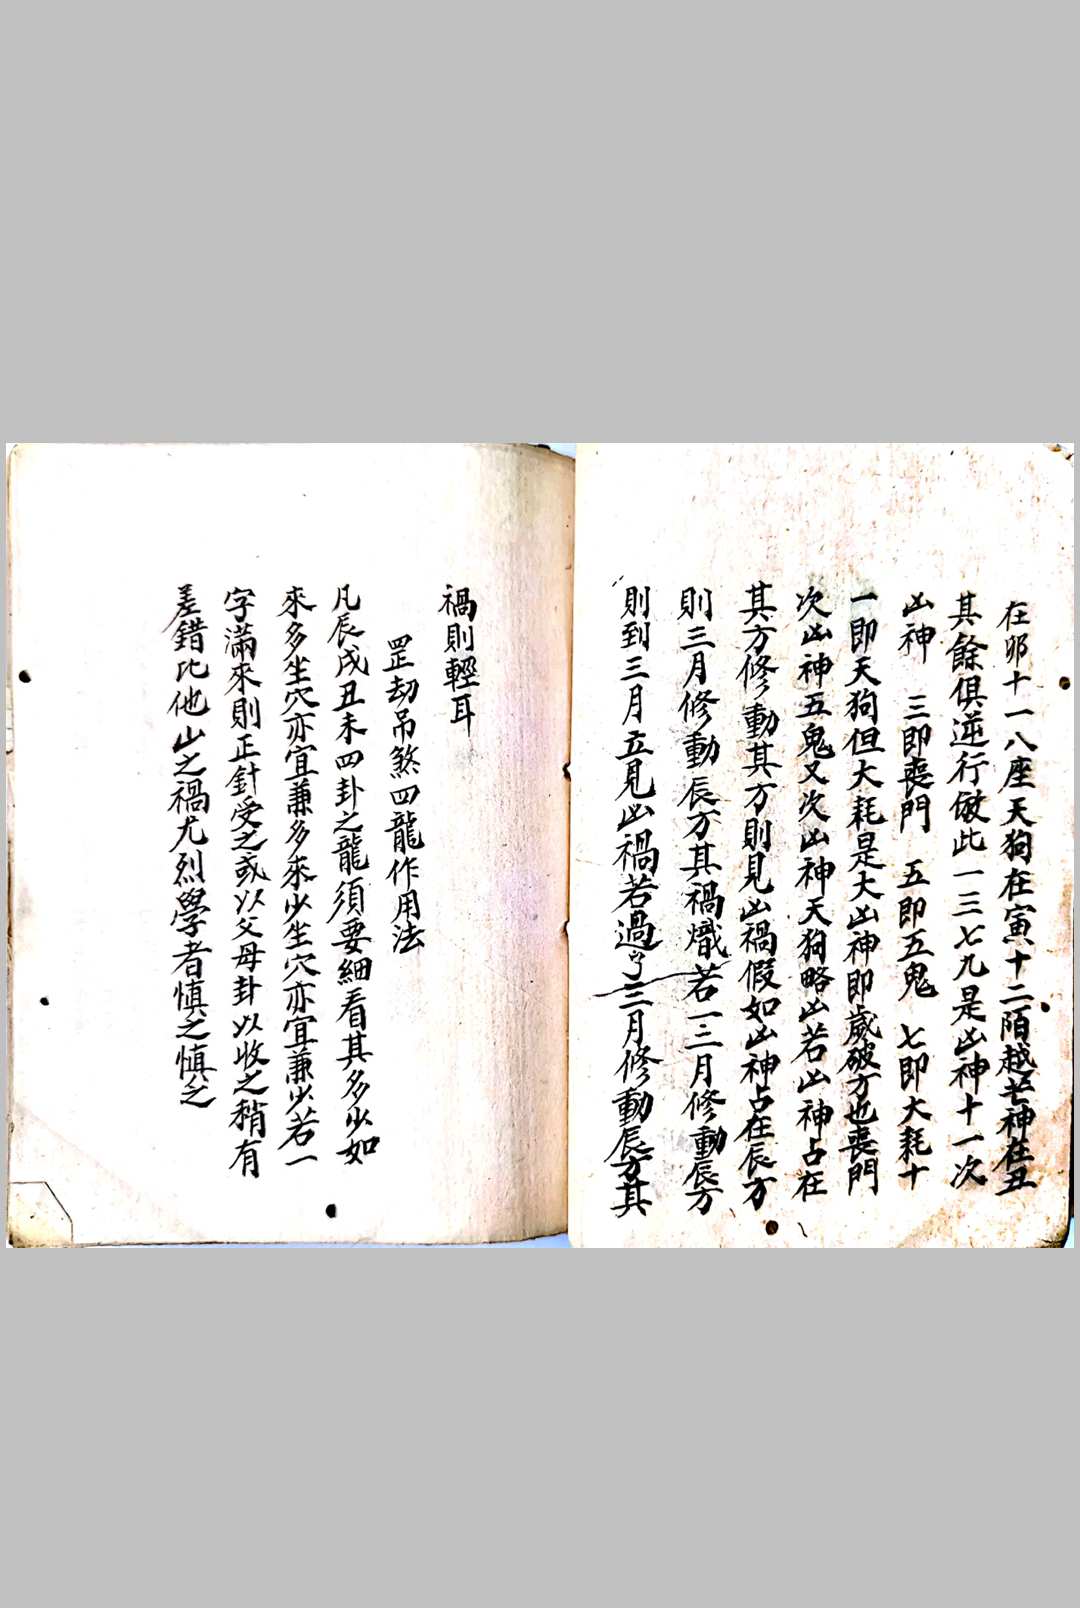 在卯十一八座天狗在寅十二陌越芒神在丑
其餘俱逆行倣此一三七九是凶神十一次
凶神　三即喪門　五即五鬼　七即大耗十
一即天狗但大耗是大凶神即歲破方也喪門
次凶神五鬼又次凶神天狗略凶若凶神占在
其方修動其方則見凶禍假如凶神占在辰方
則三月修動辰方其禍熾若一二月修動辰方
則到三月立見凶禍若過了三月修動辰方其
禍則輕耳
罡劫吊煞四龍作用法
凡辰戌丑未四卦之龍須要細看其多少如
來多坐穴亦宜兼多來少坐穴亦宜兼少若一
字滿來則正針受之或以父母卦以收之稍有
差錯比他山之禍尤烈學者慎之慎之